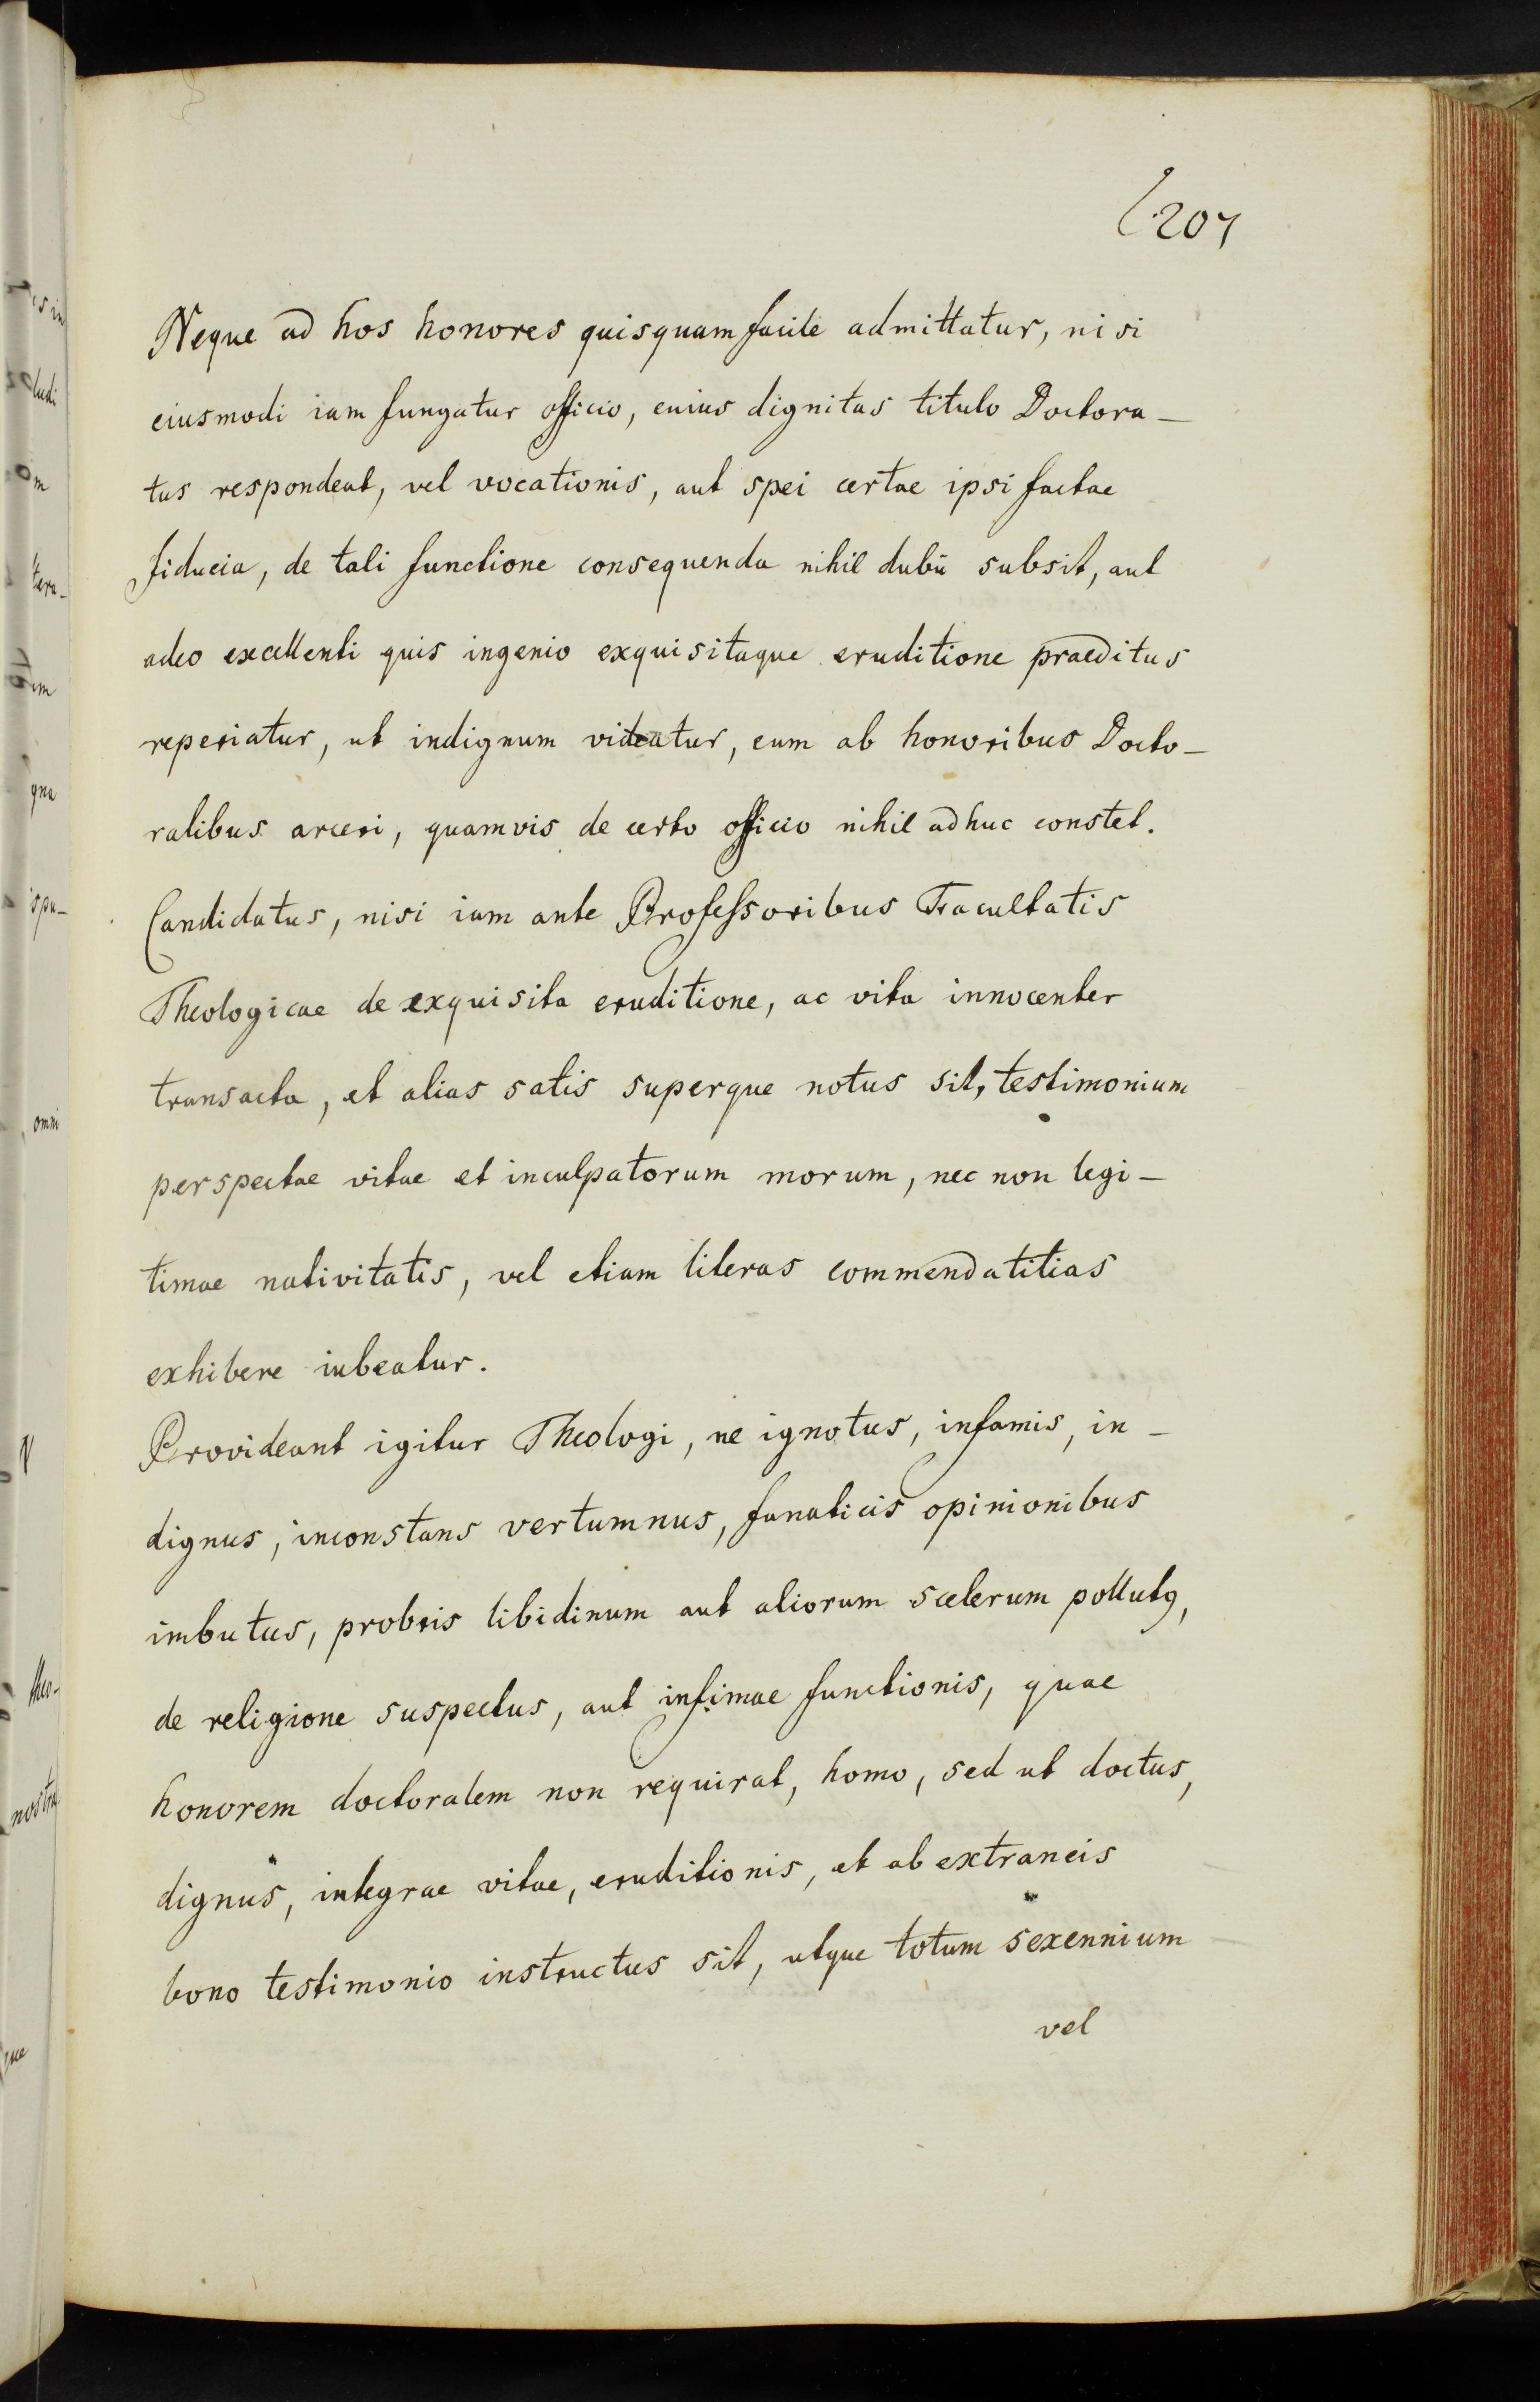 207
Neque ad hos honores quisquam facile admittatur, nisi
eiusmodi iam fungatur officio, cuius dignitas titulo Doctora-
tus respondeat, vel vocationis, aut spei certae ipsi factae
fiducia, de tali functione consequenda nihil dubii subsit, aut
adeo excellenti quis ingenio exquisitaque eruditione praeditus
reperiatur, ut indignum videatur, eum ab honoribus Docto-
ralibus arceri, quamvis de certo officio nihil adhuc constet.
Candidatus, nisi iam ante Professoribus Facultatis
Theologicae de exquisita eruditione, ac vita innocenter
transacta, et alias satis superque notus sit, testimonium
perspectae vitae et inculpatorum morum, nec non legi-
timae nativitatis, vel etiam literas commendatitias
exhibere iubeatur.
Provideant igitur Theologi, ne ignotus, infamis, in-
dignus, inconstans vertumnus, fanaticis opinionibus
imbutus, probris libidinum aut aliorum scelerum pollutꝰ,
de religione suspectus, aut infimae functionis, quae
honorem doctoralem non requirat, homo, sed ut doctus,
dignus, integrae vitae, eruditionis, et ab extraneis
bono testimonio instructus sit, utque totum sexennium
vel